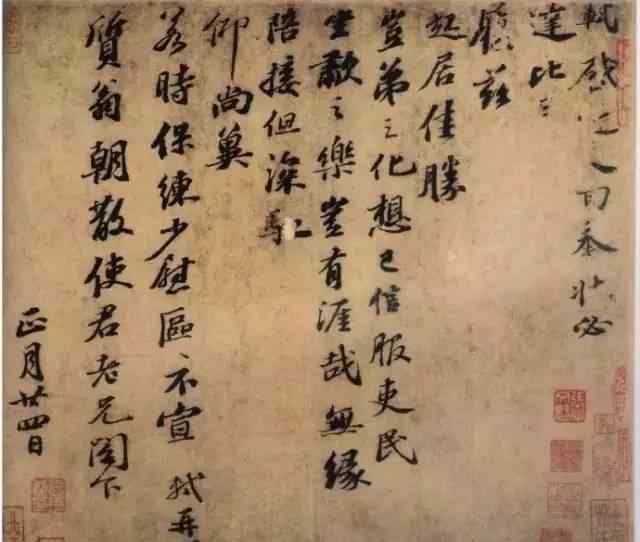 軾啟近人回奉狀必
達比日
履茲
起居佳勝
豈弟之化想已信服吏民
坐歌之樂豈有涯哉無緣
陪接但深馳
仰尚冀
若時保練少慰區區不宣 軾再
質翁朝散使君老兄閣下
正月廿四日